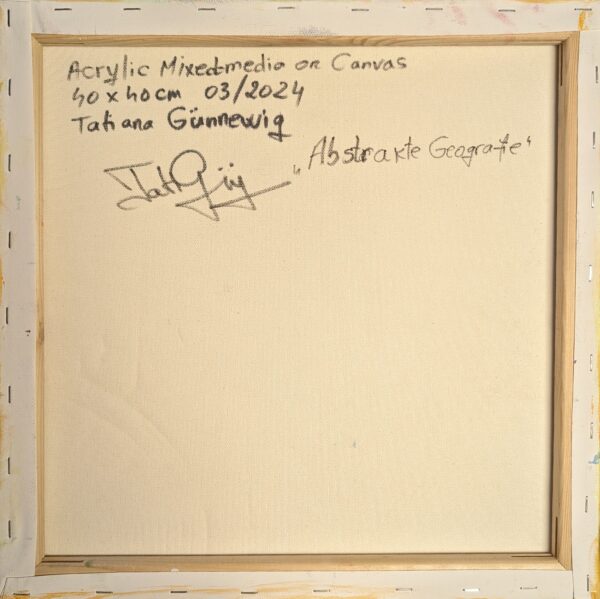 Acrylic Mixedmedia on Canvas
40 x 40cm 03/2024
Tatiana Günnewig
„Abstrakte Geografie“